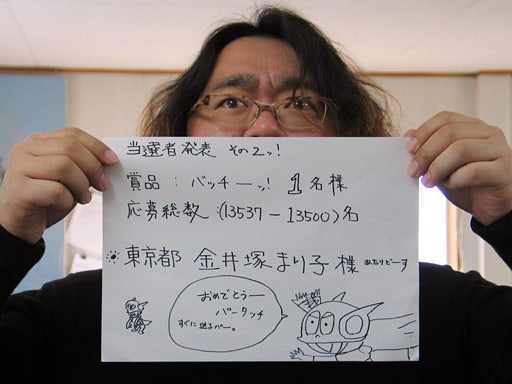 当選者発表 その2ッ!
賞品：バッチーッ! 1名様
応募総数：(13537-13500)名
東京都 金井塚まり子様 あたりどーす
おめでとうー
パータッチ
すぐに送るパー。